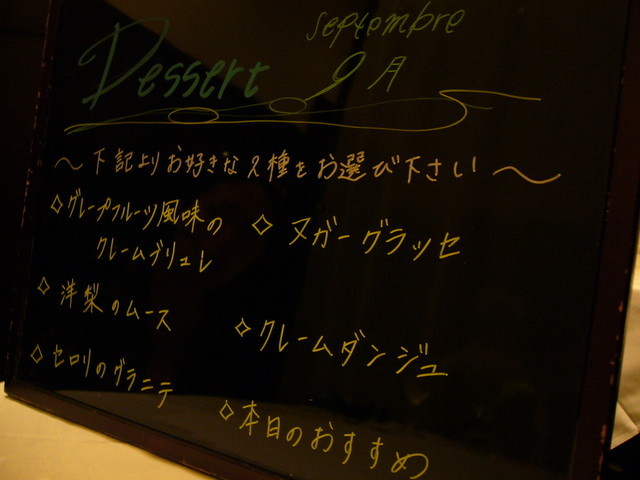 septembre
Dessert 9月
〜下記よりお好きな2種をお選び下さい〜
◇グレープフルーツ風味の
クレームブリュレ
◇洋梨のムース
◇セロリのグラニテ
◇ヌガーグラッセ
◇クレームダンジュ
◇本日のおすすめ